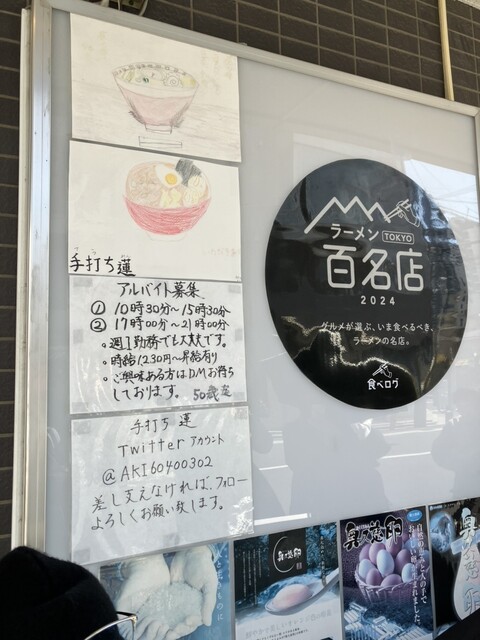 手打ち蓮
アルバイト募集
① 10時30分〜15時30分
② 17時00分〜21時00分
・週1勤務でも大丈夫です。
・時給1230円〜昇給有り
・ご興味ある方はDMお待ち
しております。
手打ち 蓮
Twitterアカウント
@AKI60400302
差し支えなければ、フォロー
よろしくお願い致します。
ラーメン TOKYO
百名店
2024
グルメが選ぶ、いま食べるべき、
ラーメンの名店。
食べログ
奥久慈卵
奥久慈卵
自然の恵みと人の手で
おいしい卵が生まれました。
奥久慈卵